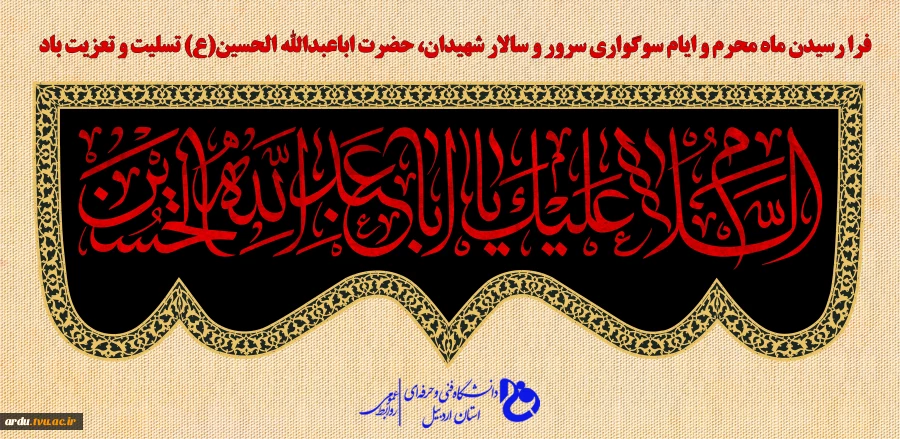 فرا رسیدن ماه محرم و ایام سوگواری سرور و سالار شهیدان، حضرت اباعبدالله الحسین(ع) تسلیت و تعزیت باد
السلام علیک یا اباعبدالله الحسین
دانشگاه فنی و حرفه‌ای
استان اردبیل
روابط عمومی
ardu.tvu.ac.ir